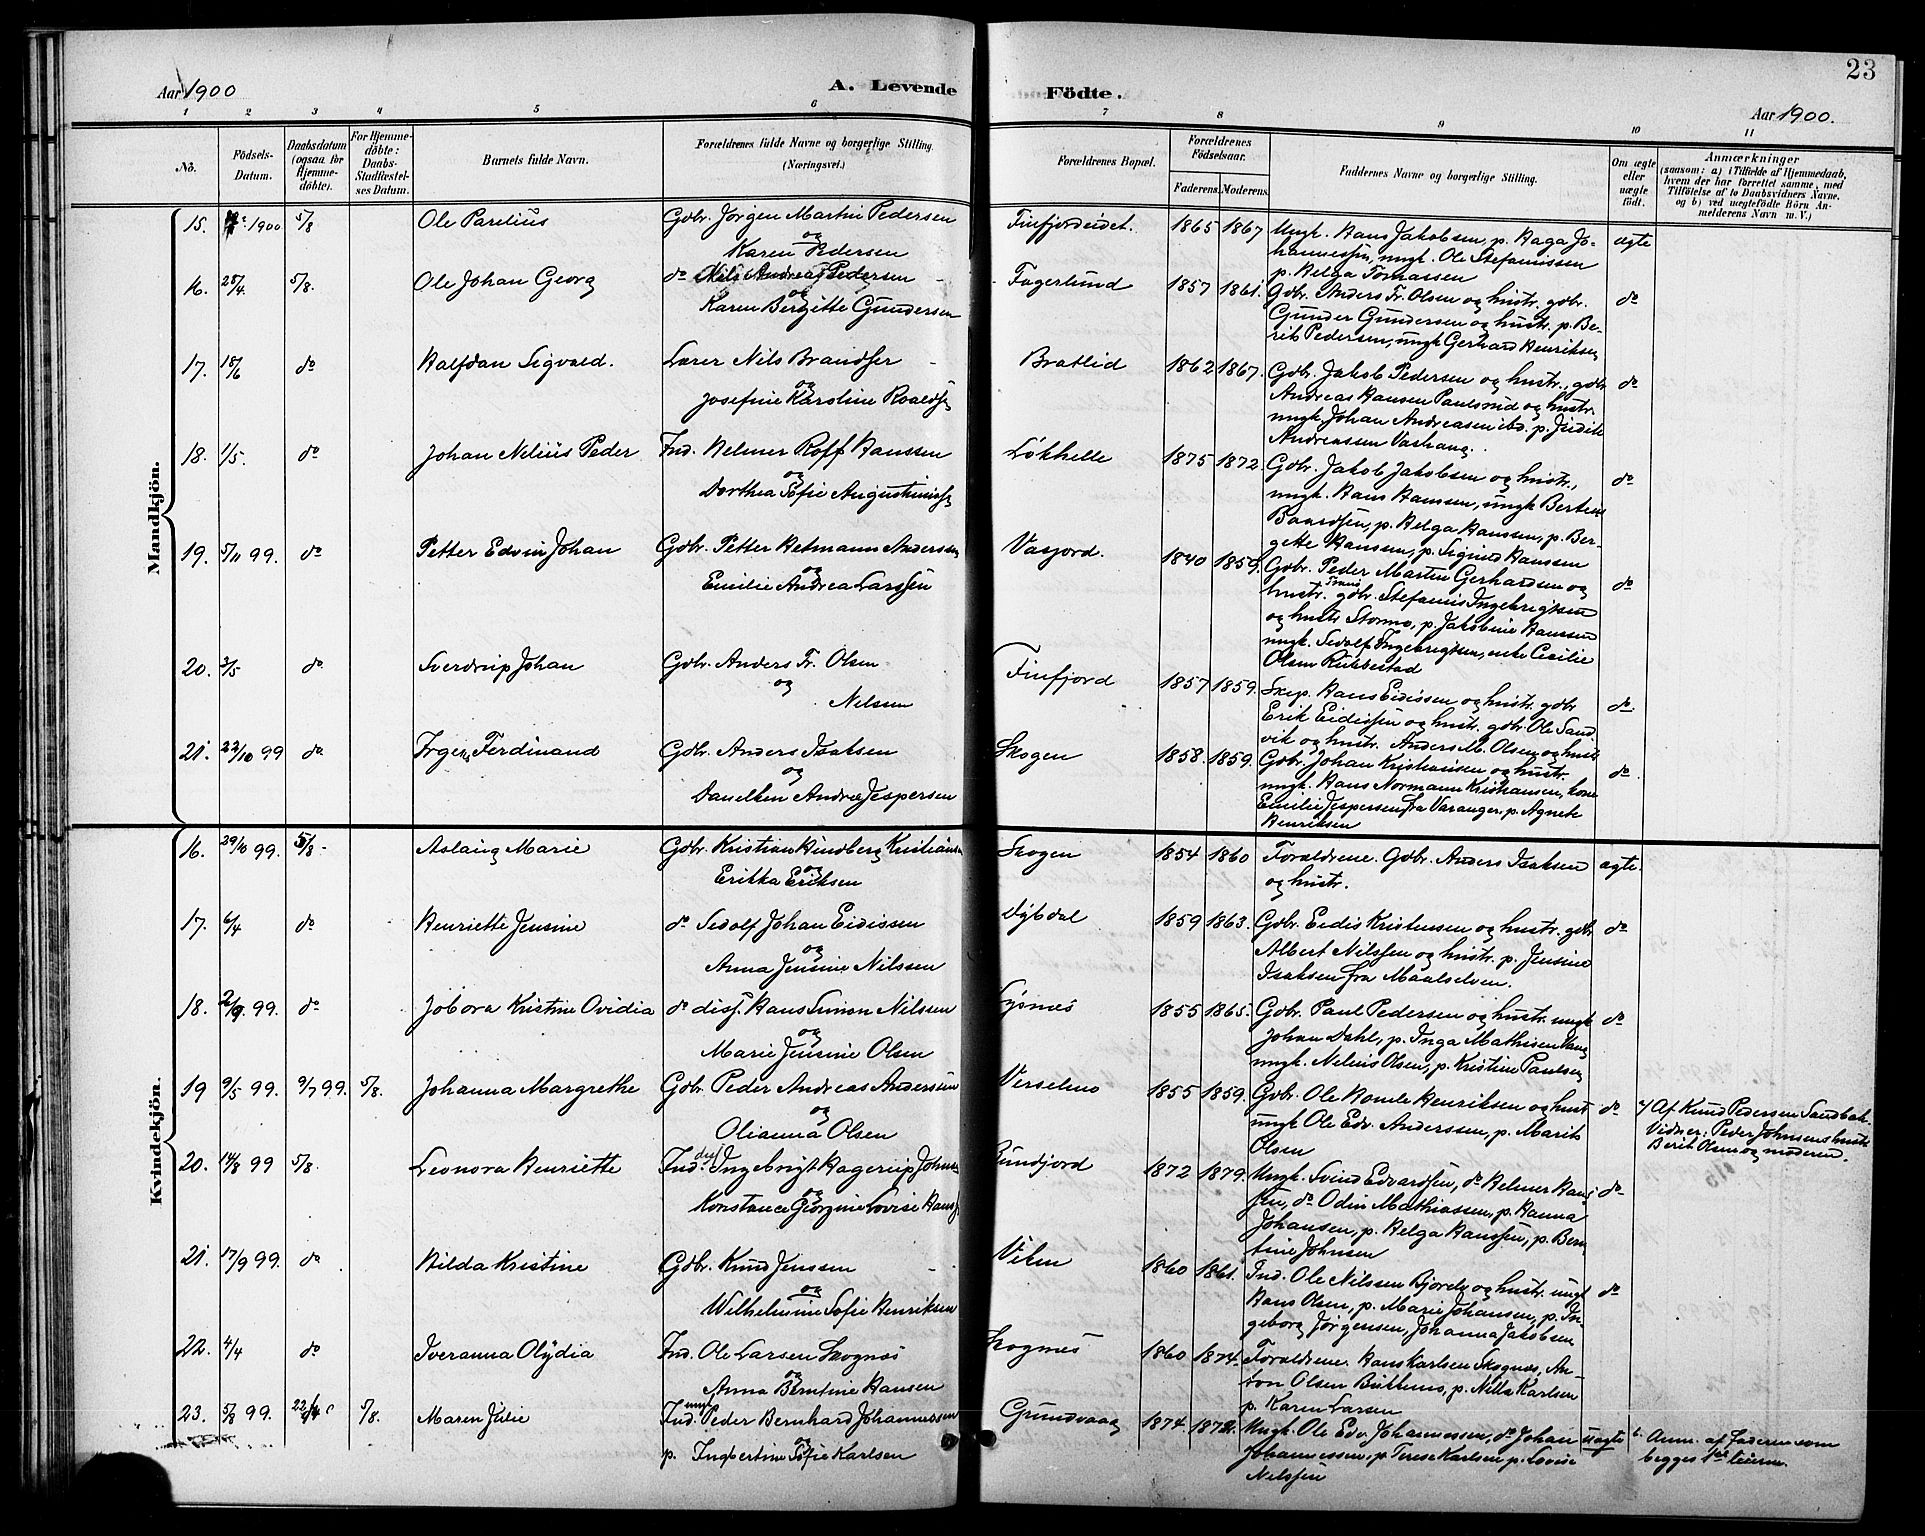 23
Aar 1900
A. Levende
Födte.
Aar 1900.
1 2 3 4 5 6 7 8 9 10 11
No.
Födsels-Datum.
Daabsdatum (ogsaa for Hjemme-döbte).
For Hjemme-döbte: Daabs-Stadfæstel-ses Datum.
Barnets fulde Navn.
Forældrenes fulde Navne og borgerlige Stilling.
(Næringsvei.)
Forældrenes Bopæl.
Forældrenes Födselsaar.
Faderens. Moderens.
Faddernes Navne og borgerlige Stilling.
Om ægte eller uægte födt.
Anmærkninger
(saasom: a) i Tilfælde af Hjemmedaab, hvem der har forrettet samme, med Tilföielse af to Daabsvidners Navne, og b) ved uægtefödte Börn An-melderens Navn m. V.)
Mandkjön.
15. 1900 5/8 Ole Parelius Gdbr. Jörgen Martin Pedersen
og
Karen Pedersen
Finfjordeidet. 1865 1867 Ungk. Hans Jakobsen, p. Haga Jo-
hannessen, ungk. Ole Stefanissen
p. Helga Tomassen
ægte
16. 28/4. 5/8. Ole Johan Georg do Nils Andreas Pedersen
og
Karen Bergitte Gundersen
Fagerlund 1857 1861. Gdbr. Anders Fr. Olsen og hustr. gdbr.
Gunder Gundersen og hustr. p. Be-
rit Pedersen, ungk Gerhard Henriksen
do
17. 18/6 do Halfdan Sigvald. Lærer Nils Brandser
og
Josefine Karoline Roaldsen
Bratlid 1862 1867. Gdbr. Jakob Pedersen og hustr., gdbr
Andreas Hansen Paulsrud og hustr.
ungk Johan Andreasen ibd. p. Judik
Andreassen Vashaug.
do
18. 1/5. do Johan Nelius Peder Ind. Helmer Roff Hanssen
og
Dorthea Sofie Augustinussen
Løkhelle 1875 1872. Gdbr. Jakob Jakobsen og hustr.,
ungk. Hans Hanssen, ungk Bertin
Baardsen, p. Helga Hanssen, p. Ber-
gette Hanssen, p. Sigrid Hanssen
do
19. 5/11 99. do Petter Edvin Johan Gdbr. Petter Hetmann Anderssen
og
Emilie Andrea Larssen
Vasjord. 1840 1859. Gdbr. Peder Martin Gerhardsen og
hustr. gdbr. Stefanus Ingebrigtsen
og hustr Stormo, p. Jakobine Hanssen
ungk. Sedolf Ingebrigtsen, enke Cecilie
Olsen Rubbestad
do
20. 3/5 do Sverdrup Johan Gdbr. Anders Fr. Olsen
og
Nelssen
Finfjord 1857 1859. Skip. Hans Eidissen og hustr. gdbr
Erik Eidissen og hustr. gdbr. Ole Sand-
vik og hustr. Anders M. Olsen og hustr
do.
21. 22/10 99 do Irgens Ferdinand Gdbr. Anders Isaksen
og
Danelken Andrea Jespersen
Skogen 1858. 1859. Gdbr. Johan Kristiansen og hustr.
ungk. Hans Normann Kristiansen, kone
Emilie Jespersen fra Varanger, p. Agnete
Henriksen
do.
Kvindekjön.
16. 29/10 99. 5/8. Aslaug Marie Gdbr. Kristian Hindberg Kristiansen
og
Erikka Eriksen
Skogen 1854 1860 Forældrene. Gdbr. Anders Isaksen
og hustr.
ægte.
17. 6/4 do Henriette Jensine do Sedolf Johan Eidissen
og
Anna Jensine Nilssen
Dybdal 1859 1863. Gdbr. Eedis Kristensen og hustr. gdbr
Albert Nilssen og hustr. p. Jensine
Isaksen fra Maalselven.
do
18. 2/9 99. do Jobora Kristine Ovidia do diss. Hans Simon Nilssen
og
Marie Jensine Olsen
Lysnes 1855 1865. Gdbr. Paul Pedersen og hustr. ungk
Johan Dahl, p. Inga Mathisen Vang
ungk. Nelius Olsen, p. Kristine Paulsen
do
19 9/5 99. 9/7 99. 5/8. Johanna Margrethe Gdbr. Peder Andreas Anderssen
og
Olianna Olsen
Verselmo 1855 1859. Gdbr. Ole Komle Henriksen og hustr
ungk Ole Edv. Anderssen, p. Marit
Olsen
do
Af Knud Pedersen Sandbak
Vidner: Peder Johnsens hustr
Berit Olsen og moderen.
20. 14/8 99 5/8. Leonora Henriette Ind. Ingebrigt Hagerup Johns
og
Konstance Georgine Lovise Hanss
Rundfjord 1872 1879. Ungk. Svend Edvardsen, do Helmer Han-
sen, do Odin Mathiassen, p. Hanna
Johansen, p. Helga Hanssen, p. Bern-
tine Johnsen
do
21. 17/9 99. do Hilda Kristine Gdbr. Knud Jenssen
og
Wilhelmine Sofie Henriksen
Viken 1860 1861. Ind. Ole Nilssen Bjorelv og hustr. ungk
Hans Olsen, p. Marie Johansen, p. In-
geborg Jørgensen, Johanna Jakobsen
do
22. 4/4 do Iveranna Olydia Ind. Ole Larsen Skognes
og
Anna Berntine Hansen
Skognes 1860 1874. Forældrene. Hans Karlsen Skognes, An-
ton Olsen Bukkemo, p. Nilla Karlsen
p. Karen Larsen
23. 5/8 99. 22/4 5/8. Maren Julie Ind. ungk Peder Bernhard Johannessen
og
p. Ingbertine Sofie Karlsen
Grundvaag 1874. 1872. Ungk. Ole Edv. Johannessen, do Johan
Johannessen, p. Terese Karlsen p. Lovise
Nelssen
uægte
Anm. af faderen som
begges 1ste leierm.